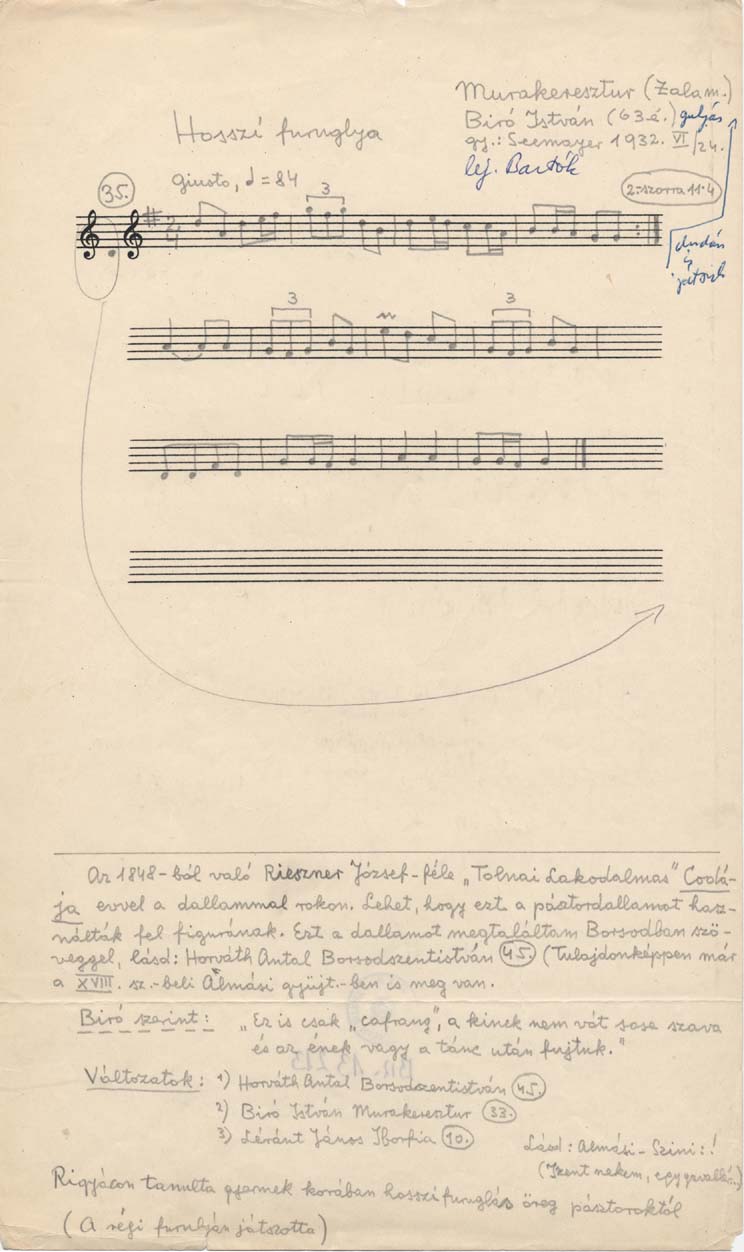 Murakeresztur (Zalam.)
Biró István (63 á.) gulyás
gy.: Seemayer 1932. VI/24.
lej. Bartók
Hosszi furuglya
35.
giusto, ♩=84
3
2.-szorra 11.4
dudán
is
játszik
2/4
3
3
Az 1848-ból való Rieszner József-féle „Tolnai Lakodalmas" Codá-
ja evvel a dallammal rokon. Lehet, hogy ezt a pásztordallamot hasz-
nálták fel figurának. Ezt a dallamot megtaláltam Borsodban szö-
veggel, lásd: Horváth Antal Borsodszentistván 45. (Tulajdonképpen már
a XVIII. sz.-beli Álmási gyüjt.-ben is meg van.
Biró szerint: „Ez is csak „cafrang", a kinek nem vót sose szava
és az ének vagy a tánc után fujtuk."
Változatok: 1) Horváth Antal Borsodszentistván 45.
2) Biró István Murakeresztur 33.
3) Léránt János Iborfia 10.
Lásd: Almási-Szini:!
(Izent nekem, egy gavallé..)
Rigyácon tanulta gyermek korában hosszifuruglás öreg pásztoroktól
(A régi furulyán játszotta)